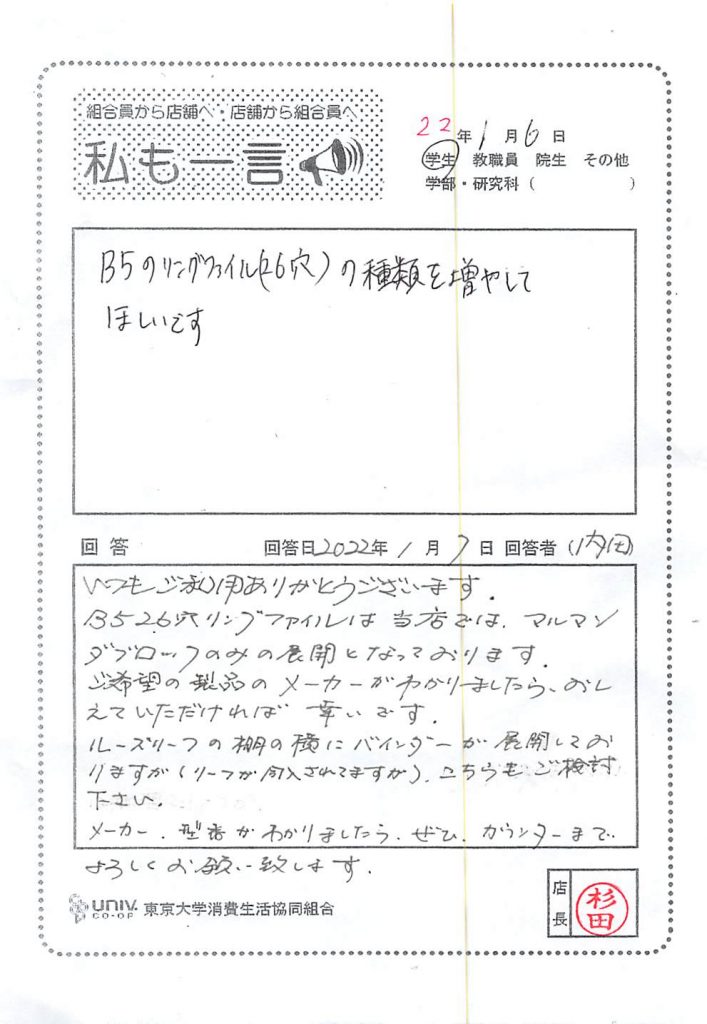 組合員から店舗へ・店舗から組合員へ
私も一言
22年1月6日
学生 教職員 院生 その他
学部・研究科（ ）
B5のリングファイル(26穴)の種類を増やして
ほしいです
回答 回答日2022年1月7日 回答者(内田)
いつもご利用ありがとうございます。
B5 26穴リングファイルは当店では、マルマン
ダブロックのみの展開となっております。
ご希望の製品のメーカーがわかりましたら、おし
えていただければ幸いです。
ルーズリーフの棚の横にバインダーが展開してお
りますが(リーフが封入されてますが)、こちらもご検討
下さい。
メーカー、型番がわかりましたら、ぜひ、カウンターまで
よろしくお願い致します。
UNIV. CO-OP 東京大学消費生活協同組合
店長 杉田